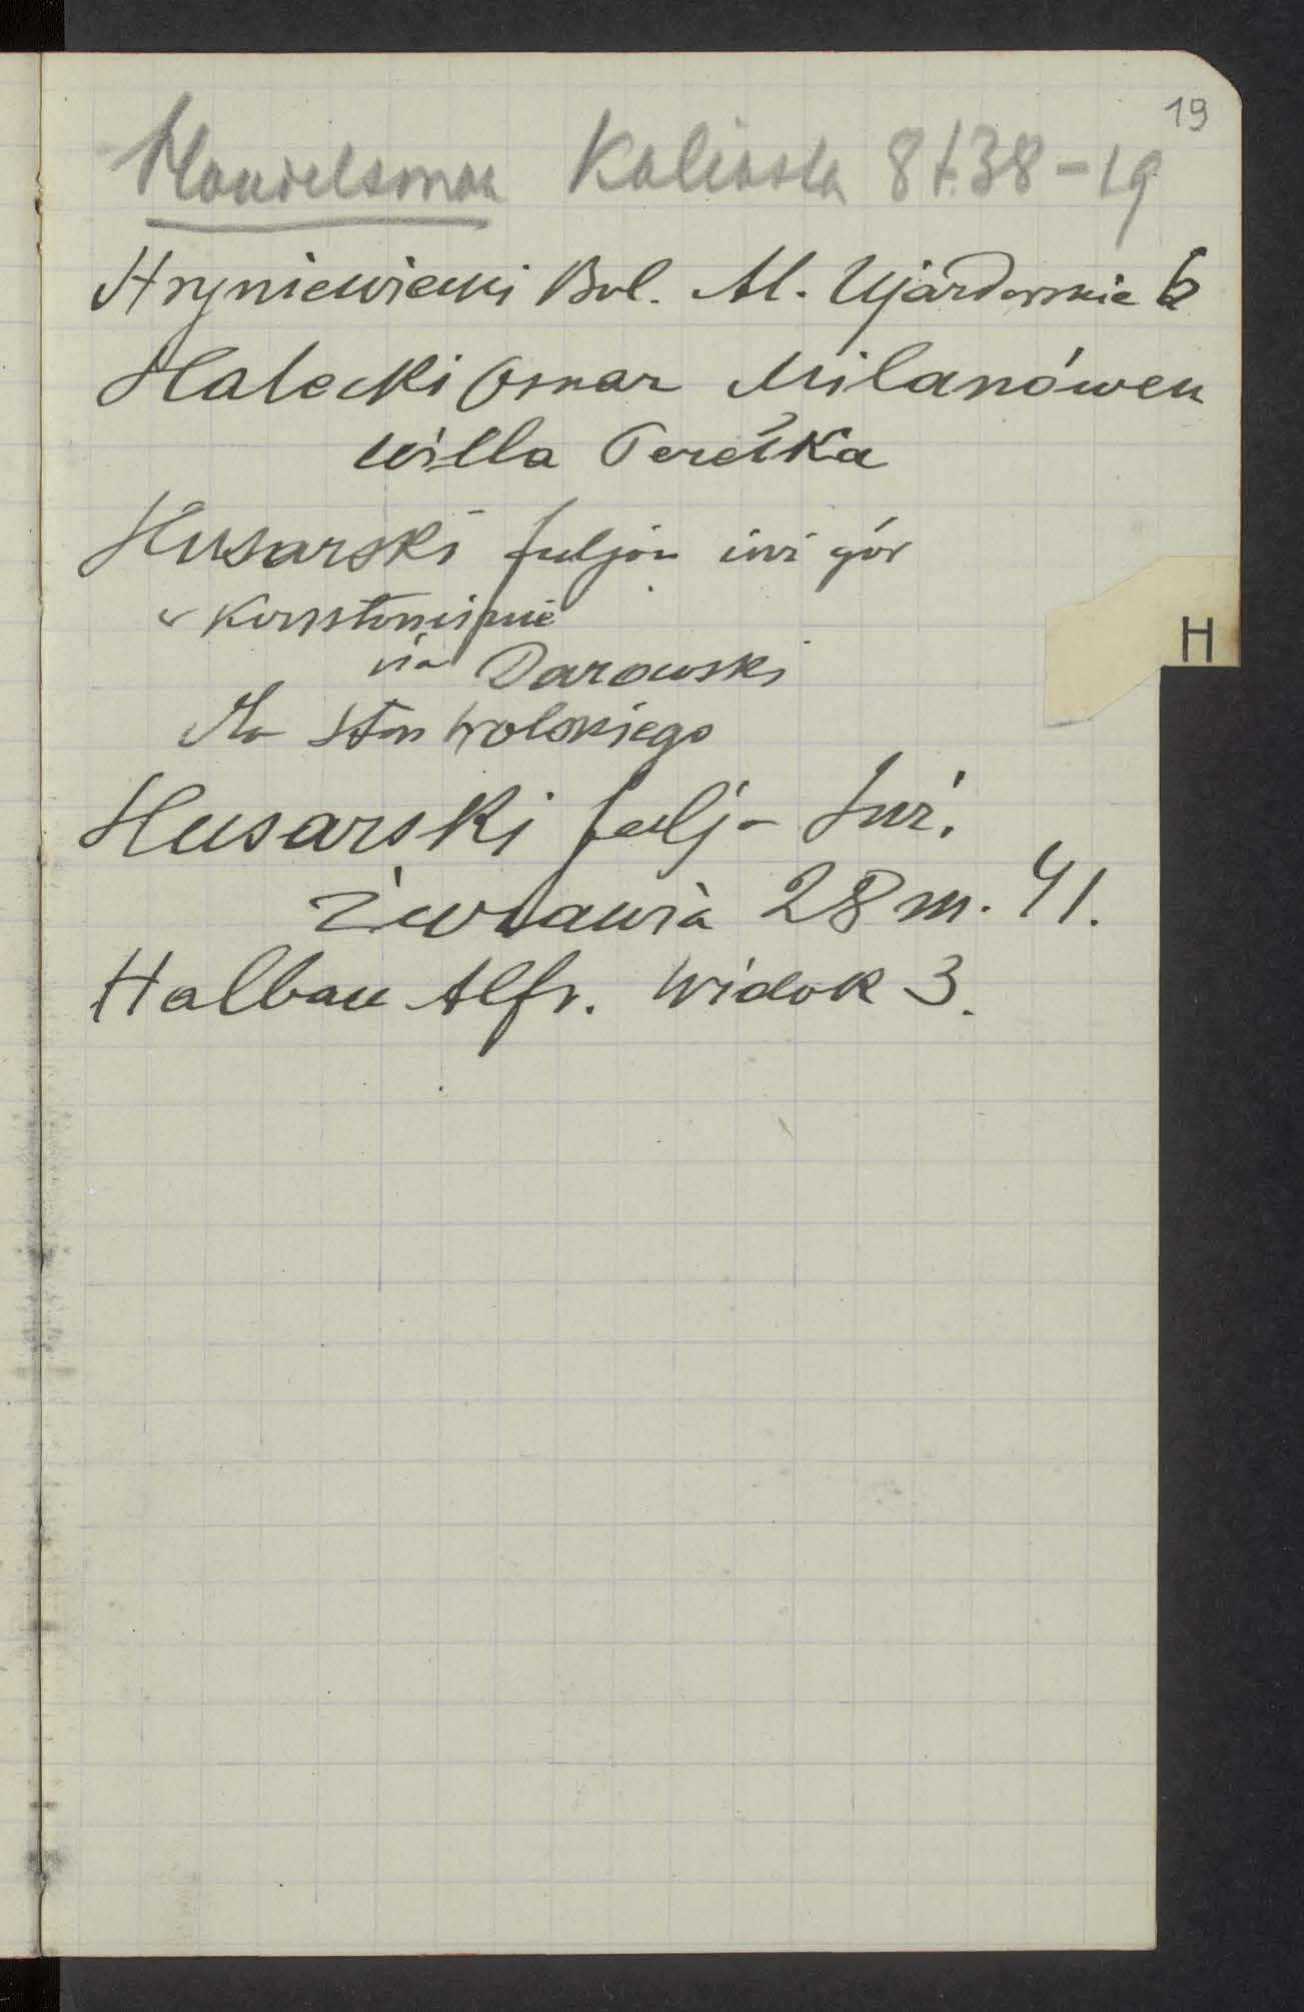 19
Handelsman Kaliska 8 t. 38-19
Hryniewiecki Bol. Al. Ujazdowskie 6
Halecki Oskar Milanówek
willa Tereska
Husarski Juljan inż gór
w Konstancinie
via Darowski
Ma Stan Wolskiego
Husarski Julj- Inż.
Żurawia 28 m. 41.
Halban Alfr. Widok 3.
H